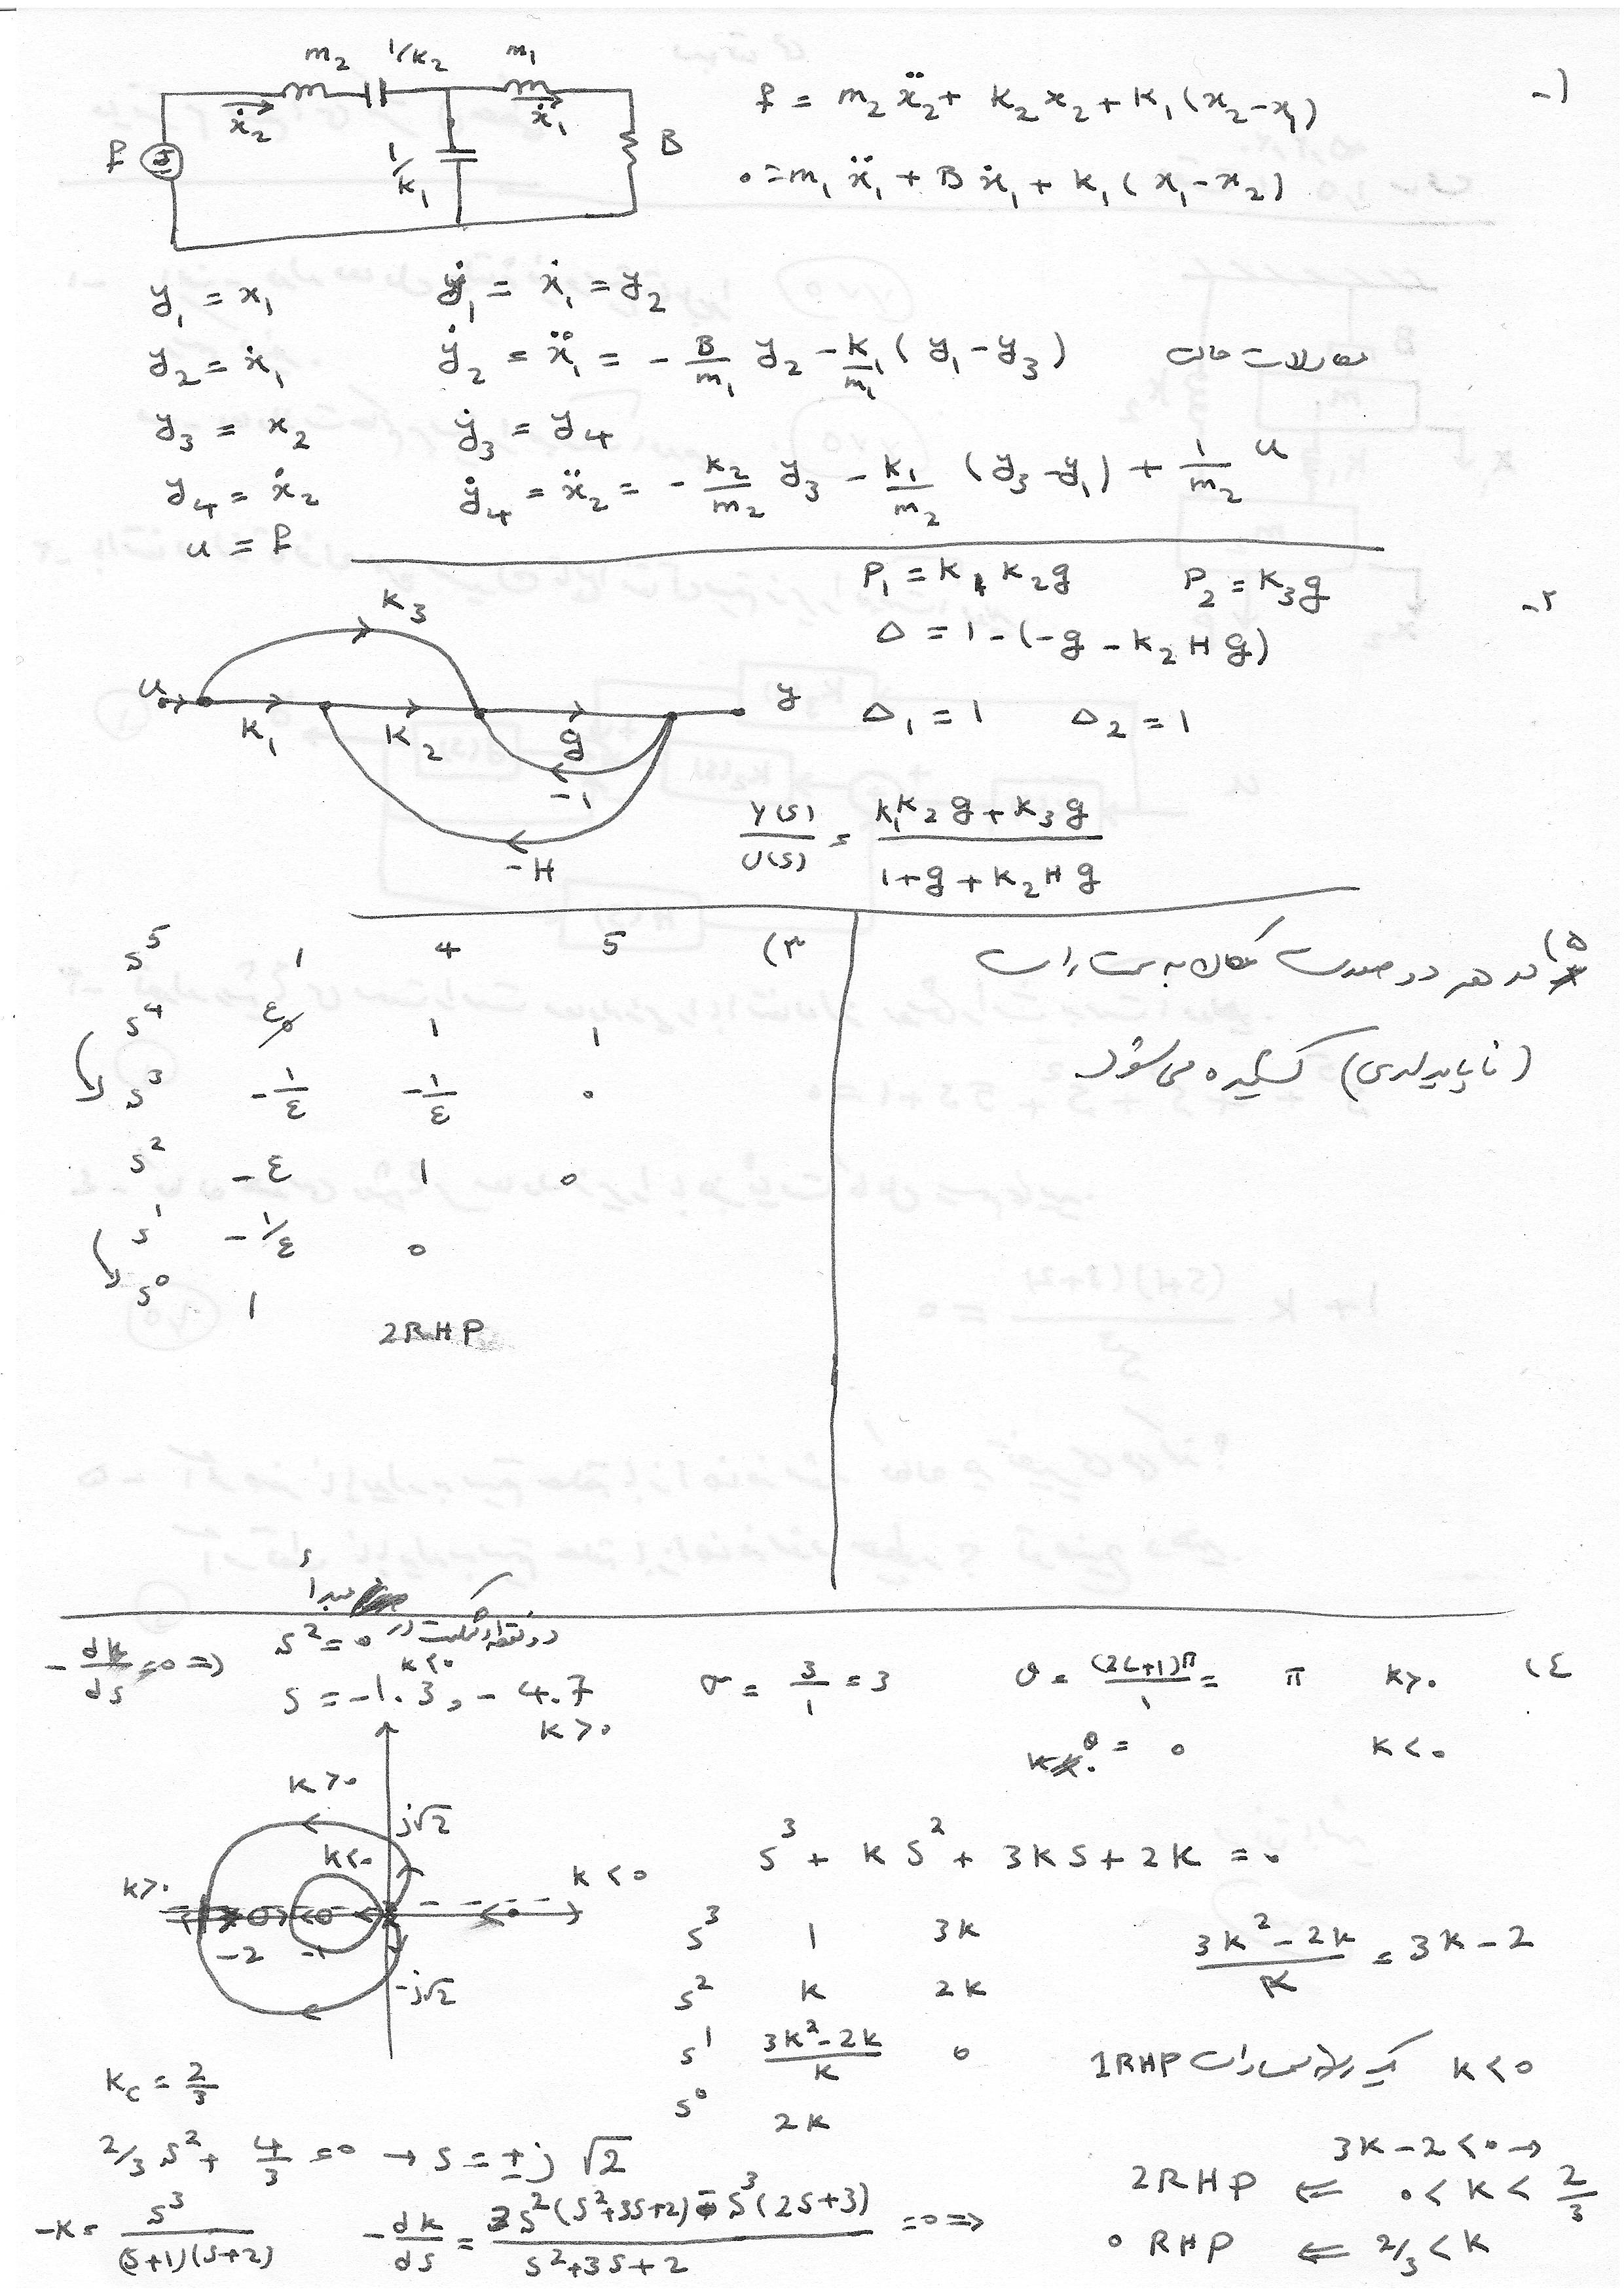 m₂ 1/k₂ m₁
ẋ₂ ẋ₁
f 1/k₁ B
۱-
f = m₂ẍ₂ + k₂x₂ + k₁(x₂-x₁)
0 = m₁ẍ₁ + Bẋ₁ + k₁(x₁-x₂)
y₁ = x₁ ẏ₁ = ẋ₁ = y₂
y₂ = ẋ₁ ẏ₂ = ẍ₁ = -B/m₁ y₂ - k₁/m₁ (y₁-y₃) معادلات حالت
y₃ = x₂ ẏ₃ = y₄
y₄ = ẋ₂ ẏ₄ = ẍ₂ = -k₂/m₂ y₃ - k₁/m₂ (y₃-y₁) + 1/m₂ u
u = f
۲-
P₁ = k₁k₂g P₂ = k₃g
Δ = 1-(-g-k₂Hg)
Δ₁ = 1 Δ₂ = 1
k₃
u k₁ k₂ g y
-1
-H
Y(s)/U(s) = (k₁k₂g + k₃g)/(1+g+k₂Hg)
۳)
s⁵ 1 4 5
s⁴ ε 1 1
s³ -1/ε -1/ε 0
s² -ε 1 0
s¹ -1/ε 0
s⁰ 1
2RHP
۵) در هر دو صورت مکان به سمت راست
(ناپایداری) کشیده می‌شود
۴)
-dk/ds = 0 ⇒ s² = 0 دو نقطه شکست در مبدأ
k<0
s = -1.3, -4.7
k>0
σ = 3/1 = 3 θ = (2L+1)π/1 = π k>0
θ = 0 k<0
k>0 j√2
k<0
k>0 k<0
-2 -1
-j√2
s³ + ks² + 3ks + 2k = 0
s³ 1 3k
s² k 2k
s¹ (3k²-2k)/k 0
s⁰ 2k
(3k²-2k)/k = 3k-2
k<0 یک ریشه سمت راست 1RHP
3k-2<0 →
0<k<2/3 ⇐ 2RHP
2/3<k ⇐ 0 RHP
k_c = 2/3
2/3 s² + 4/3 = 0 → s = ±j√2
-k = s³/((s+1)(s+2)) -dk/ds = (3s²(s²+3s+2) - s³(2s+3))/(s²+3s+2) = 0 ⇒